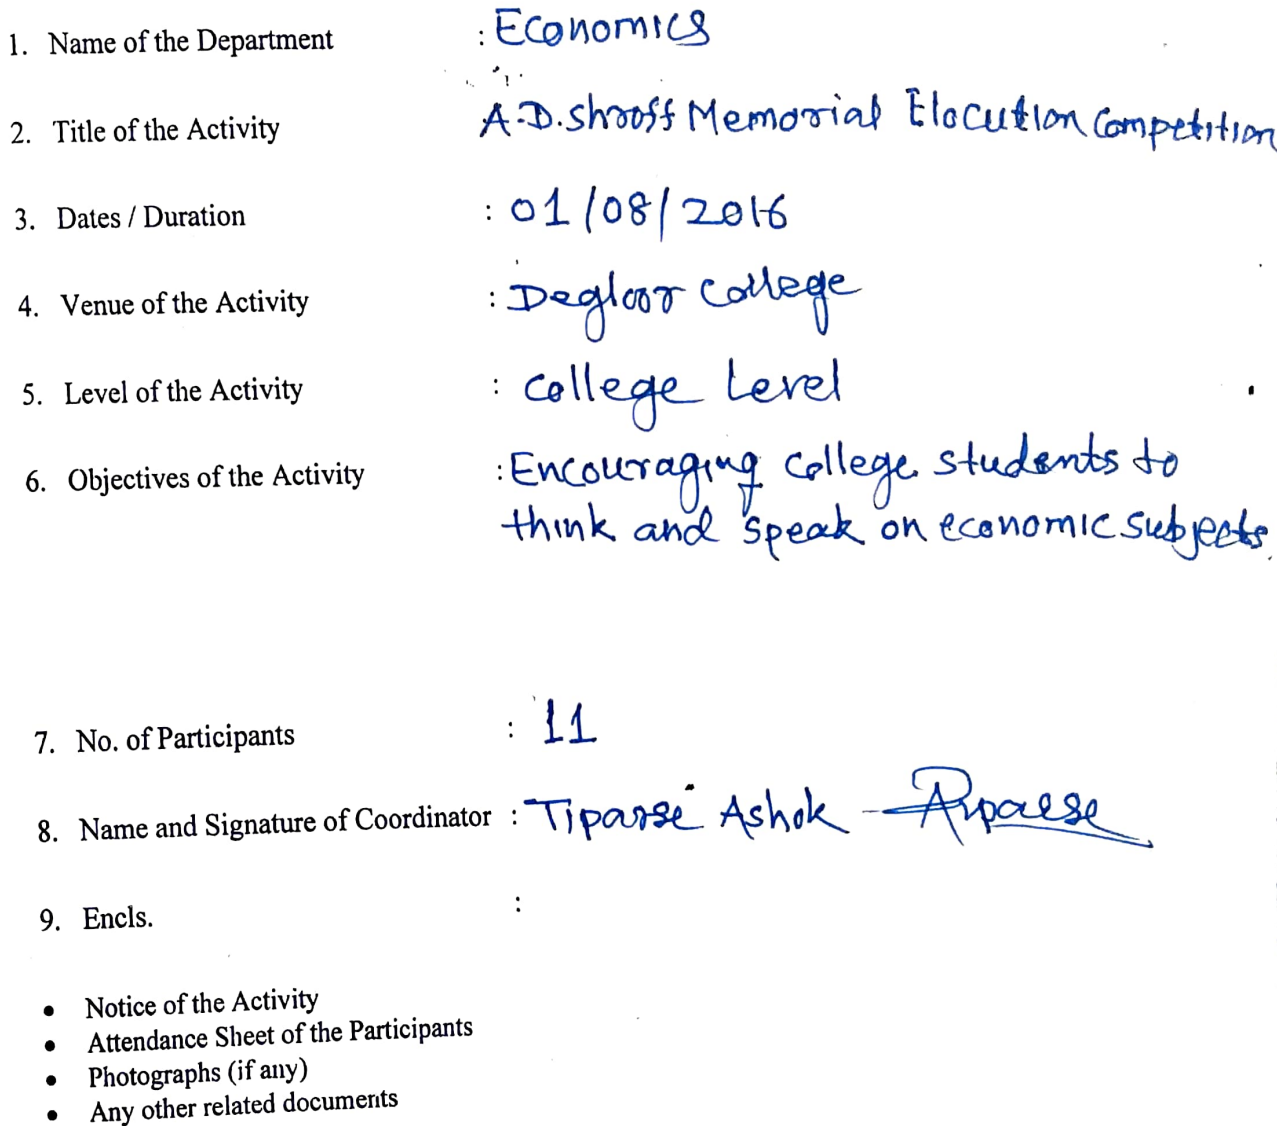 1. Name of the Department : Economics
2. Title of the Activity A.D. Shroff Memorial Elocution Competition
3. Dates / Duration : 01/08/2016
4. Venue of the Activity : Degloor College
5. Level of the Activity : College Level
6. Objectives of the Activity : Encouraging college students to
think and speak on economic subjects.
7. No. of Participants : 11
8. Name and Signature of Coordinator : Tiparse Ashok
9. Encls. :
• Notice of the Activity
• Attendance Sheet of the Participants
• Photographs (if any)
• Any other related documents